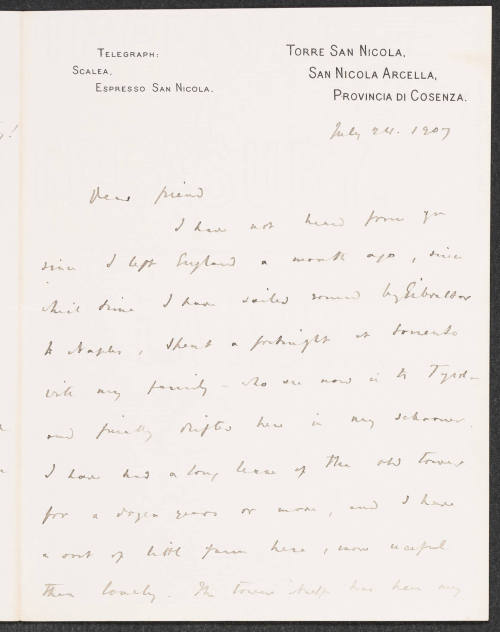 TELEGRAPH:
SCALEA,
ESPRESSO SAN NICOLA.
TORRE SAN NICOLA,
SAN NICOLA ARCELLA,
PROVINCIA DI COSENZA.
July 24. 1907
Dear friend
I have not heard from you
since I left England a month ago, since
which time I have sailed round by Gibraltar
to Naples, spent a fortnight at Sorrento
with my family – who are now in the Tyrol –
and finally drifted here in my schooner.
I have had a long lease of the old tower
for a dozen years or more, and I have
a sort of little farm here, more useful
than lovely. The tower itself has been my